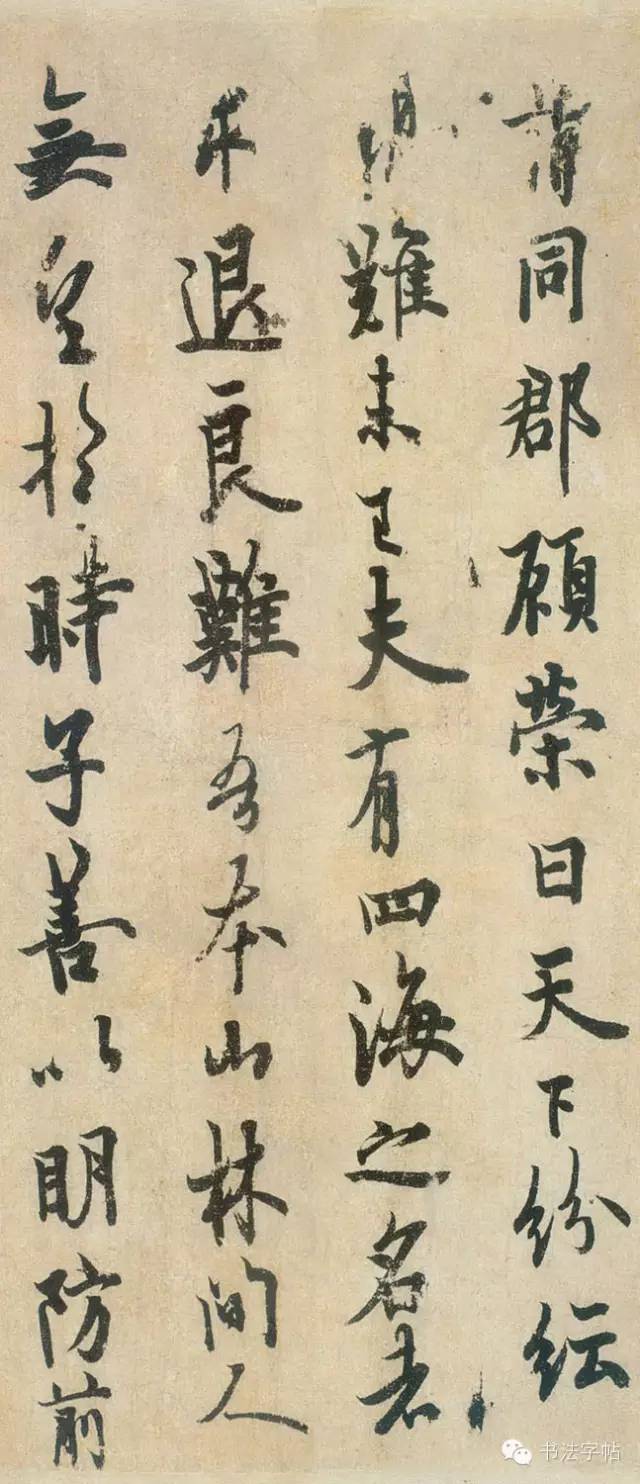 同郡顧榮曰天下紛紜
難未已夫有四海之名者
求退良難吾本山林間人
無望於時子善以明防前
书法字帖